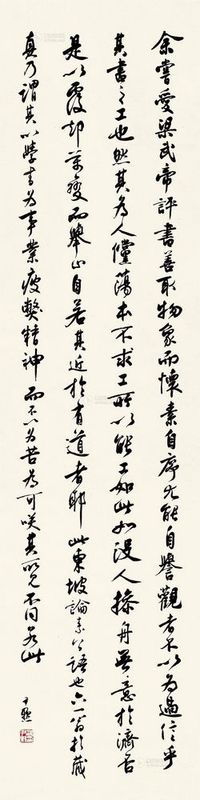 余嘗愛梁武帝評書善取物象而懷素自序尤能自譽觀者不以為過信乎
其書之工也然其為人儻蕩本不求工所以能工如此如沒人操舟無意於濟否
是以覆却萬變而舉止自若其近於有道者耶此東坡論素公語也六一翁於藏
真乃謂其以學書為事業疲弊精神而不以為苦為可笑其所見不同若此
尹默